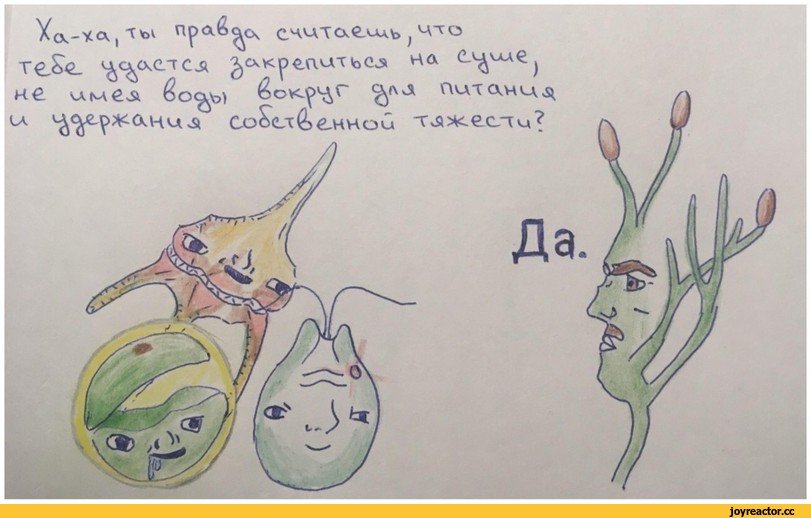 Ха-ха, ты правда считаешь, что
тебе удастся закрепиться на суше,
не имея воды вокруг для питания
и удержания собственной тяжести?
Да.
joyreactor.cc